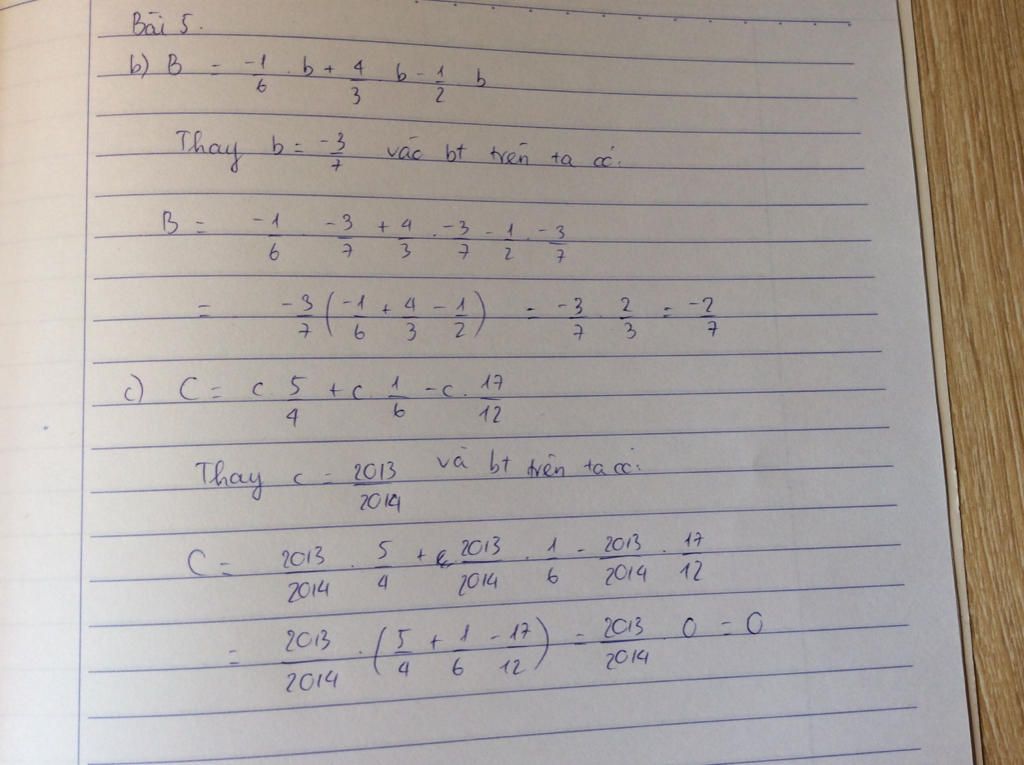 Bài 5.
b) B = -1/6 . b + 4/3 b - 1/2 b
Thay b = -3/7 vào bt trên ta có:
B = -1/6 . -3/7 + 4/3 . -3/7 - 1/2 . -3/7
= -3/7 (-1/6 + 4/3 - 1/2) = -3/7 . 2/3 = -2/7
c) C = c . 5/4 + c . 1/6 - c . 17/12
Thay c = 2013/2014 và bt trên ta có:
C = 2013/2014 . 5/4 + 2013/2014 . 1/6 - 2013/2014 . 17/12
= 2013/2014 . (5/4 + 1/6 - 17/12) = 2013/2014 . 0 = 0